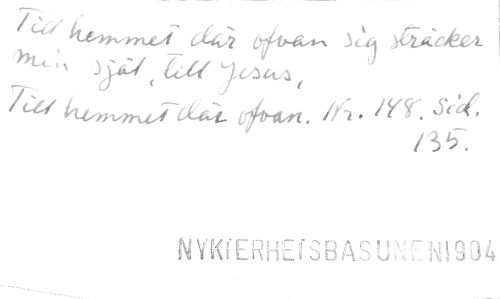 Till hemmet där ofvan sig sträcker
min själ, till Jesus,
Till hemmet där ofvan. Nr. 148. Sid.
135.
NYKTERHETSBASUNEN1904